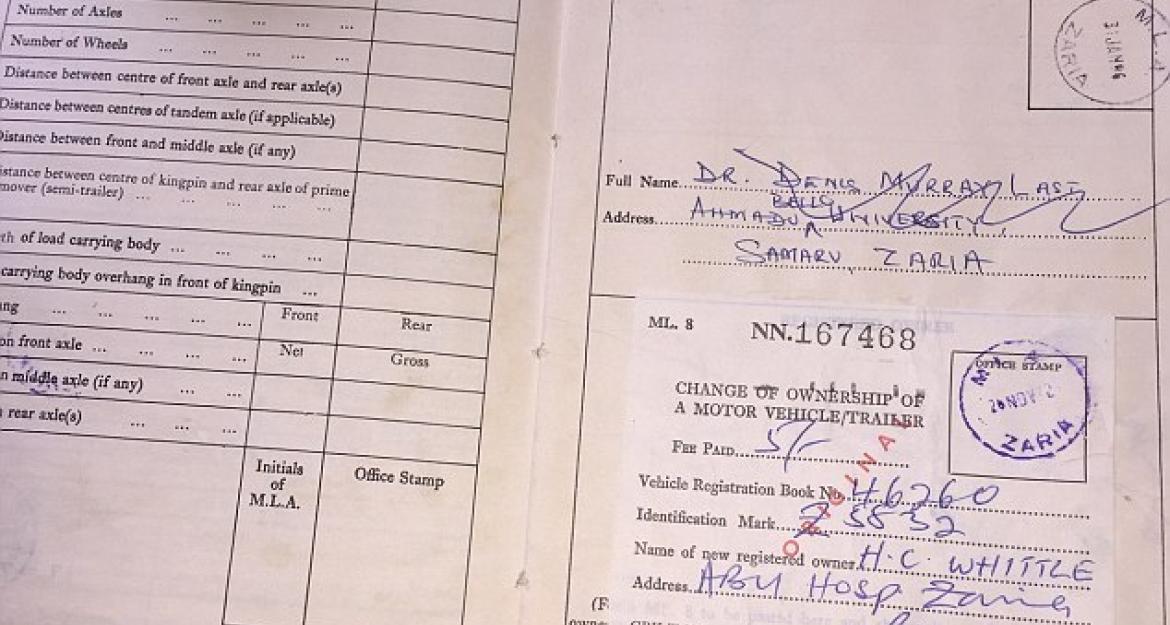 Number of Axles ... ... ... ...
Number of Wheels ... ... ... ...
Distance between centre of front axle and rear axle(s)
Distance between centres of tandem axle (if applicable)
Distance between front and middle axle (if any)
istance between centre of kingpin and rear axle of prime
mover (semi-trailer) ... ... ... ...
th of load carrying body ... ... ... ...
carrying body overhang in front of kingpin ...
ang ... ... ... ... ... Front Rear
on front axle ... ... ... ... Net Gross
n middle axle (if any) ... ...
rear axle(s) ... ... ...
Initials
of
M.L.A.
Office Stamp
M.L.A
ZARIA
Full Name DR. DENIS MURRAY LAST
Address AHMADU BELLO UNIVERSITY,
SAMARU, ZARIA
ML. 8 NN.167468
OFFICE STAMP
ZARIA
CHANGE OF OWNERSHIP OF
A MOTOR VEHICLE/TRAILER
FEE PAID 5/-
ORIGINAL
Vehicle Registration Book No. 46260
Identification Mark Z 5532
Name of new registered owner H.C. WHITTLE
Address ABU Hosp Zaria
(F